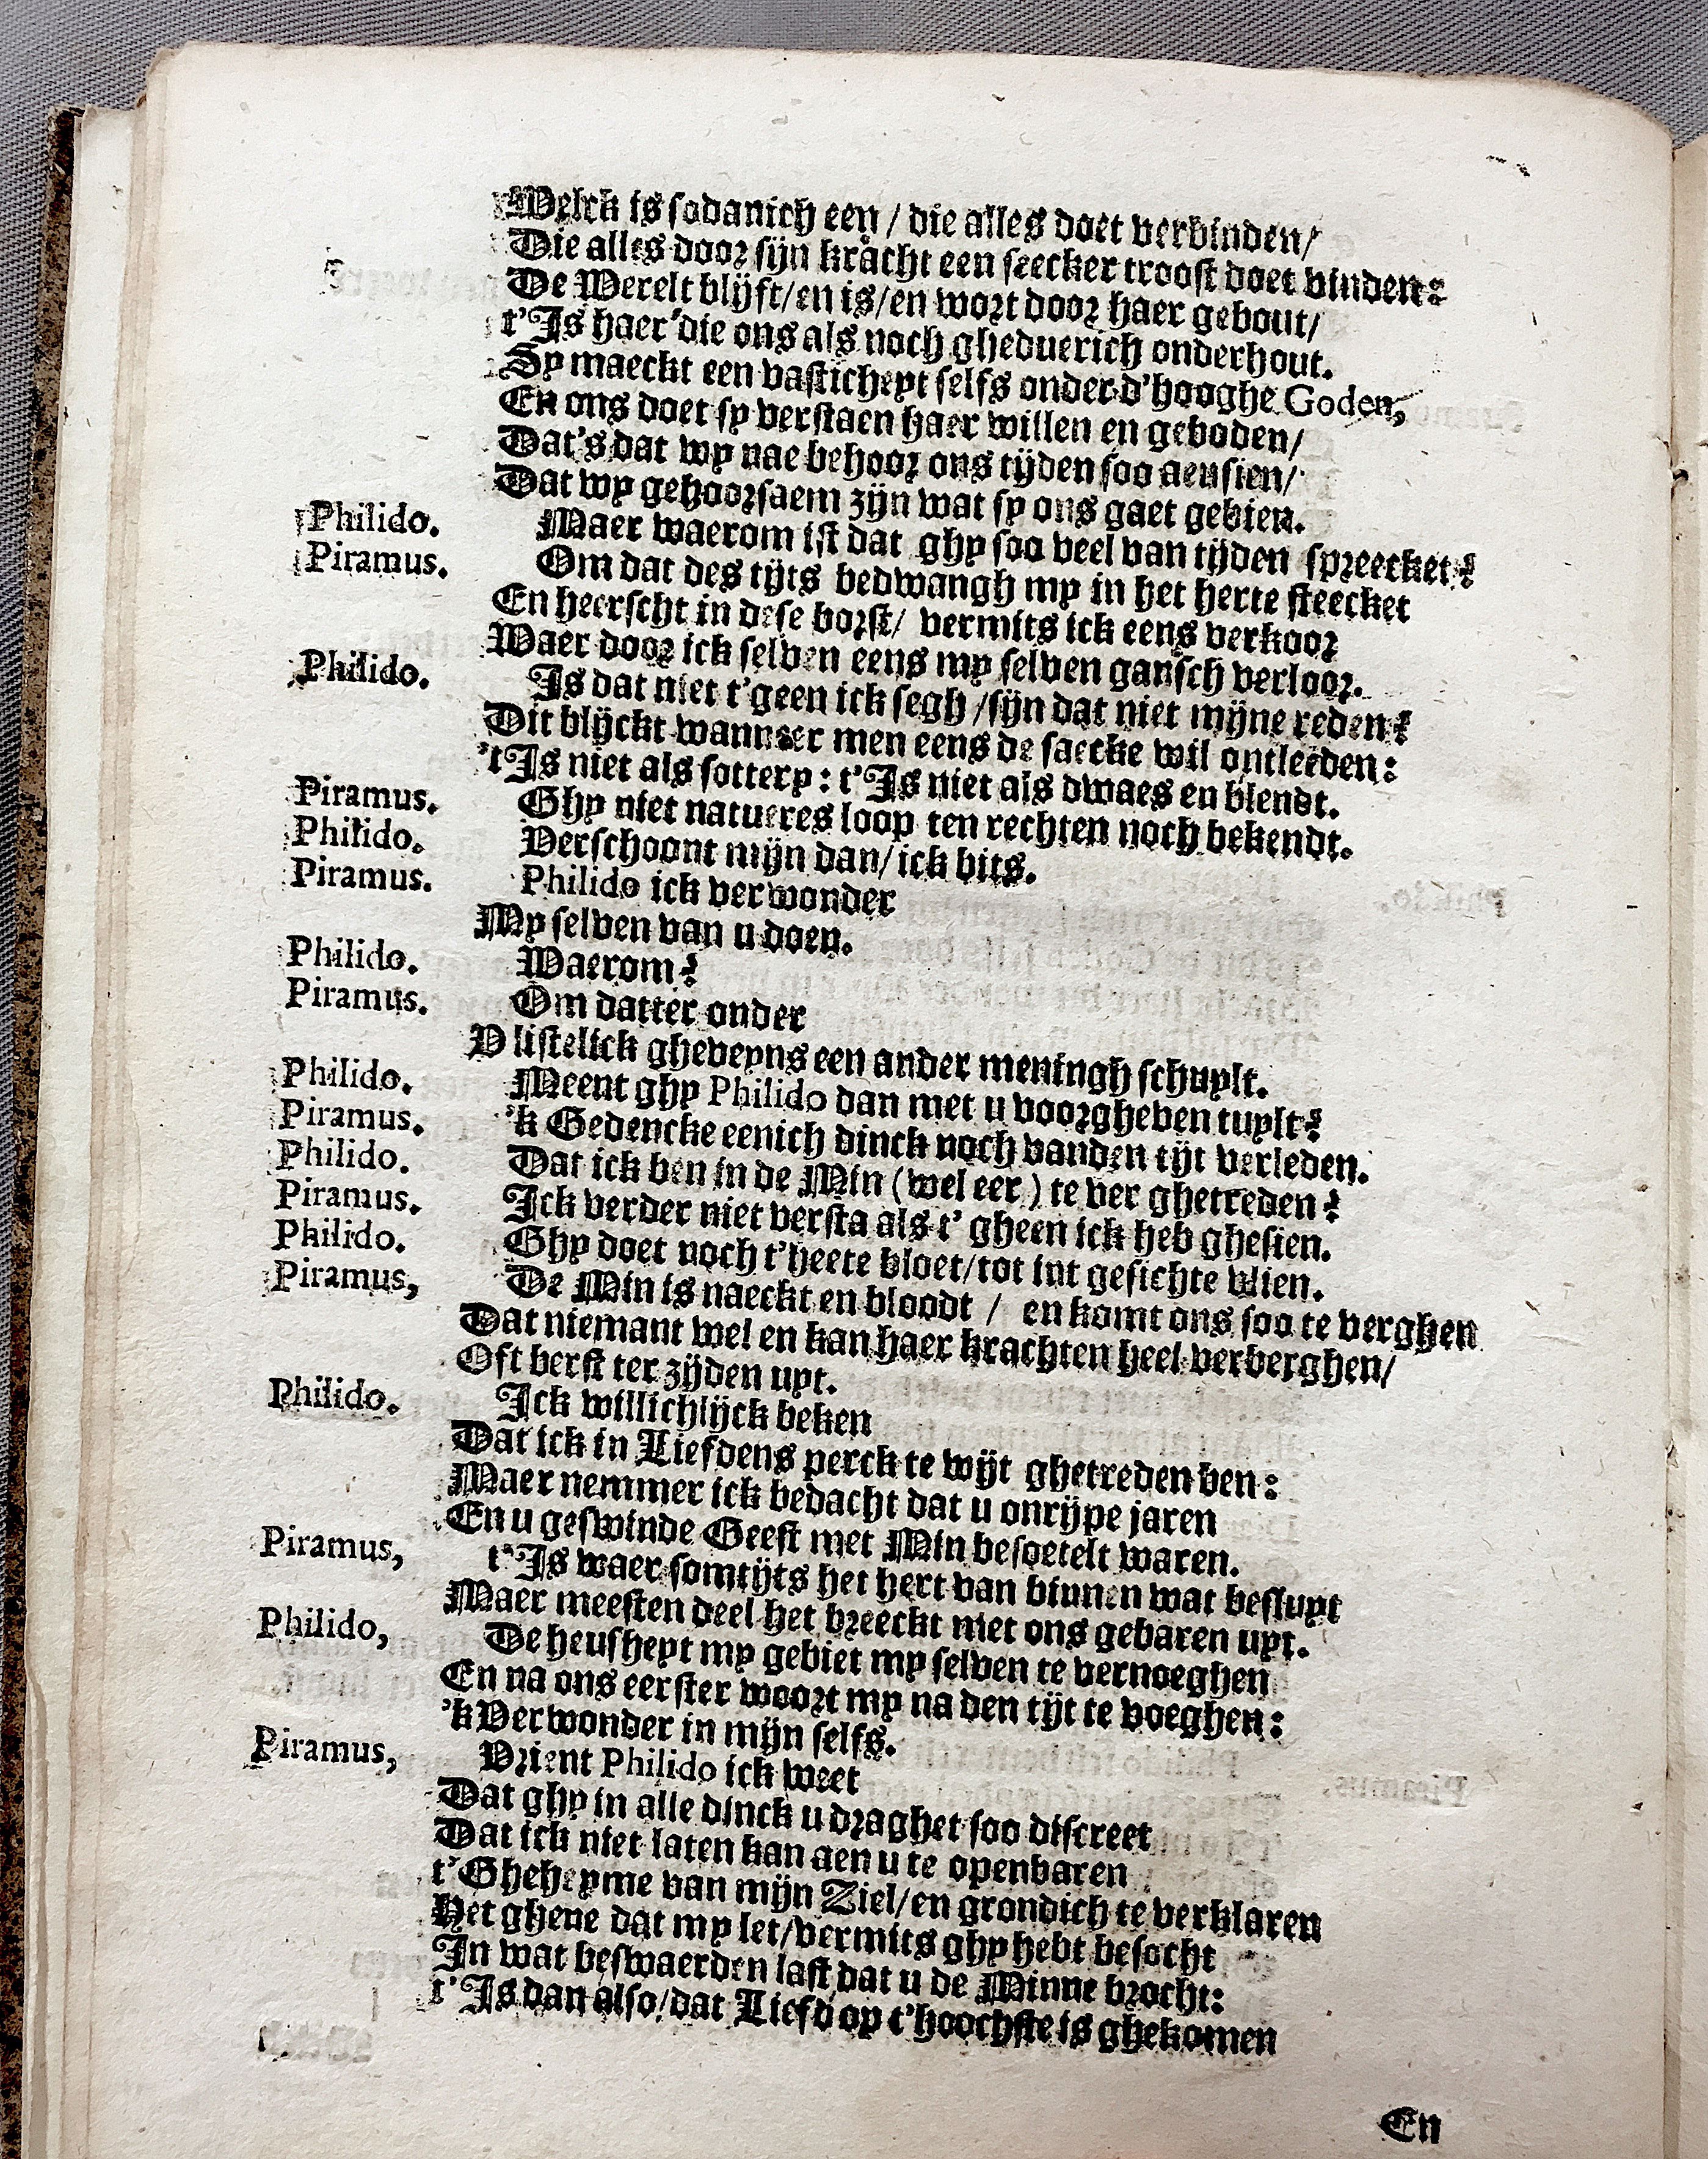 Welck is sodanich een / die alles doet verbinden/
Die alles door sijn kracht een seecker troost doet vinden:
De Werelt blijft/en is/en wort door haer gebout/
t'Is haer die ons als noch gheduerich onderhout.
Sy maeckt een vasticheyt selfs onder d'hooghe Goden,
En ons doet sy verstaen haer willen en geboden/
Dat's dat wy nae behoor ons tijden soo aensien/
Dat wy gehoorsaem zijn wat sy ons gaet gebien.
Philido. Maer waerom ist dat ghy soo veel van tijden spreecket?
Piramus. Om dat des tijts bedwangh my in het herte steecket
En heerscht in dese borst/ vermits ick eens verkoor
Waer door ick selven eens my selven gansch verloor.
Philido. Is dat niet t'geen ick segh /sijn dat niet mijne reden?
Dit blijckt wanneer men eens de saecke wil ontleeden:
't Is niet als sottery: t'Is niet als dwaes en blendt.
Piramus. Ghy niet natueres loop ten rechten noch bekendt.
Philido. Verschoont mijn dan/ ick bits.
Piramus. Philido ick verwonder
My selven van u doen.
Philido. Waerom?
Piramus. Om datter onder
V listelick gheveyns een ander meningh schuylt.
Philido. Meent ghy Philido dan met u voorgheven tuylt?
Piramus. 'k Gedencke eenich dinck noch vanden tijt verleden.
Philido. Dat ick ben in de Min (wel eer) te ver ghetreden?
Piramus. Ick verder niet versta als t' gheen ick heb ghesien.
Philido. Ghy doet noch t'heete bloet/tot int gesichte vlien.
Piramus, De Min is naeckt en bloodt / en komt ons soo te verghen
Dat niemant wel en kan haer krachten heel verberghen/
Oft berst ter zijden uyt.
Philido. Ick willichlijck beken
Dat ick in Liefdens perck te wijt ghetreden ben:
Maer nemmer ick bedacht dat u onrijpe jaren
En u geswinde Geest met Min besoetelt waren.
Piramus, t'Is waer somtijts het hert van binnen wat besluyt
Maer meesten deel het breeckt met ons gebaren uyt.
Philido, De heusheyt my gebiet my selven te vernoeghen
En na ons eerster woort my na den tijt te voeghen:
'k Verwonder in mijn selfs.
Piramus, Vrient Philido ick weet
Dat ghy in alle dinck u draghet soo discreet
Dat ick niet laten kan aen u te openbaren
t'Gheheyme van mijn Ziel/en grondich te verklaren
Het ghene dat my let/vermits ghy hebt besocht
In wat beswaerden last dat u de Minne brocht:
t'Is dan also/dat Liefd op t'hoochste is ghekomen
En